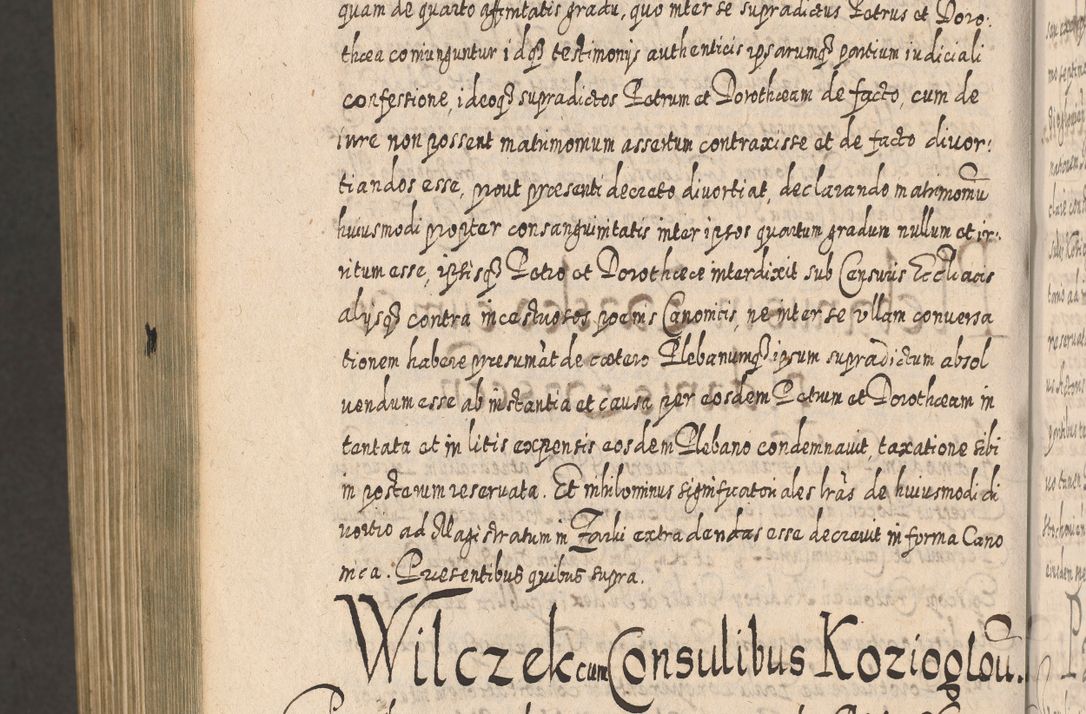 quam de quarto affinitatis gradu, quo inter se supradictus Petrus et Doro:
thea coniunguntur idq3 testimonijs authenticis ipsarumq3 partium iudiciali
confessione, ideoq3 supradictos Petrum et Dorotheam de facto, cum de
iure non possent matrimonium assertum contraxisse et de facto divor:
tiandos esse, prout præsenti decreto divortiat, declarando matrimoniũ
huiusmodi propter consanguinitatis inter ipsos quartum gradum nullum et ir:
ritum esse, ipsisq3 Petro et Dorotheæ interdixit sub Censuris Eccliacis
alijsq3 contra incæstuosos pœnis Canonicis, ne inter se vllam conversa
tionem habere præsumãt de cætero Plebanumq3 ipsum supradictum absol
vendum esse ab instantia et causa per eosdem Petrum et Dorotheam in
tentata et in litis expensis eosdem Plebano condemnavit, taxatione sibi
in posterum reservata. Et nihilominus significatoriales lrãs de huiusmodi di
vortio ad Magistratum in Zarki extradendas esse decrevit in forma Cano
nica. Præsentibus quibus supra.
Wilczek cum Consulibus Kozioglou.